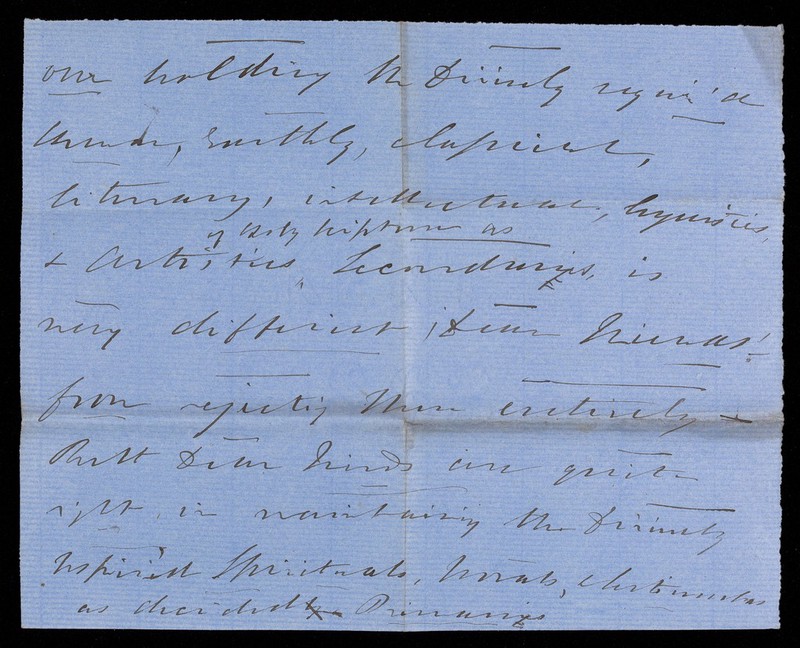 our holding the Divinely requir'd
Human, Earthly, classical,
literary, intellectual, linguistic,
of Holy Scripture as
& Artistics Secondaries, is
very different, 'Dear Friends'
from rejecting them entirely -
But Dear Friends are quite
right, in maintaining the Divinely
Inspired Spirituals, Morals,
as decidedly Primaries